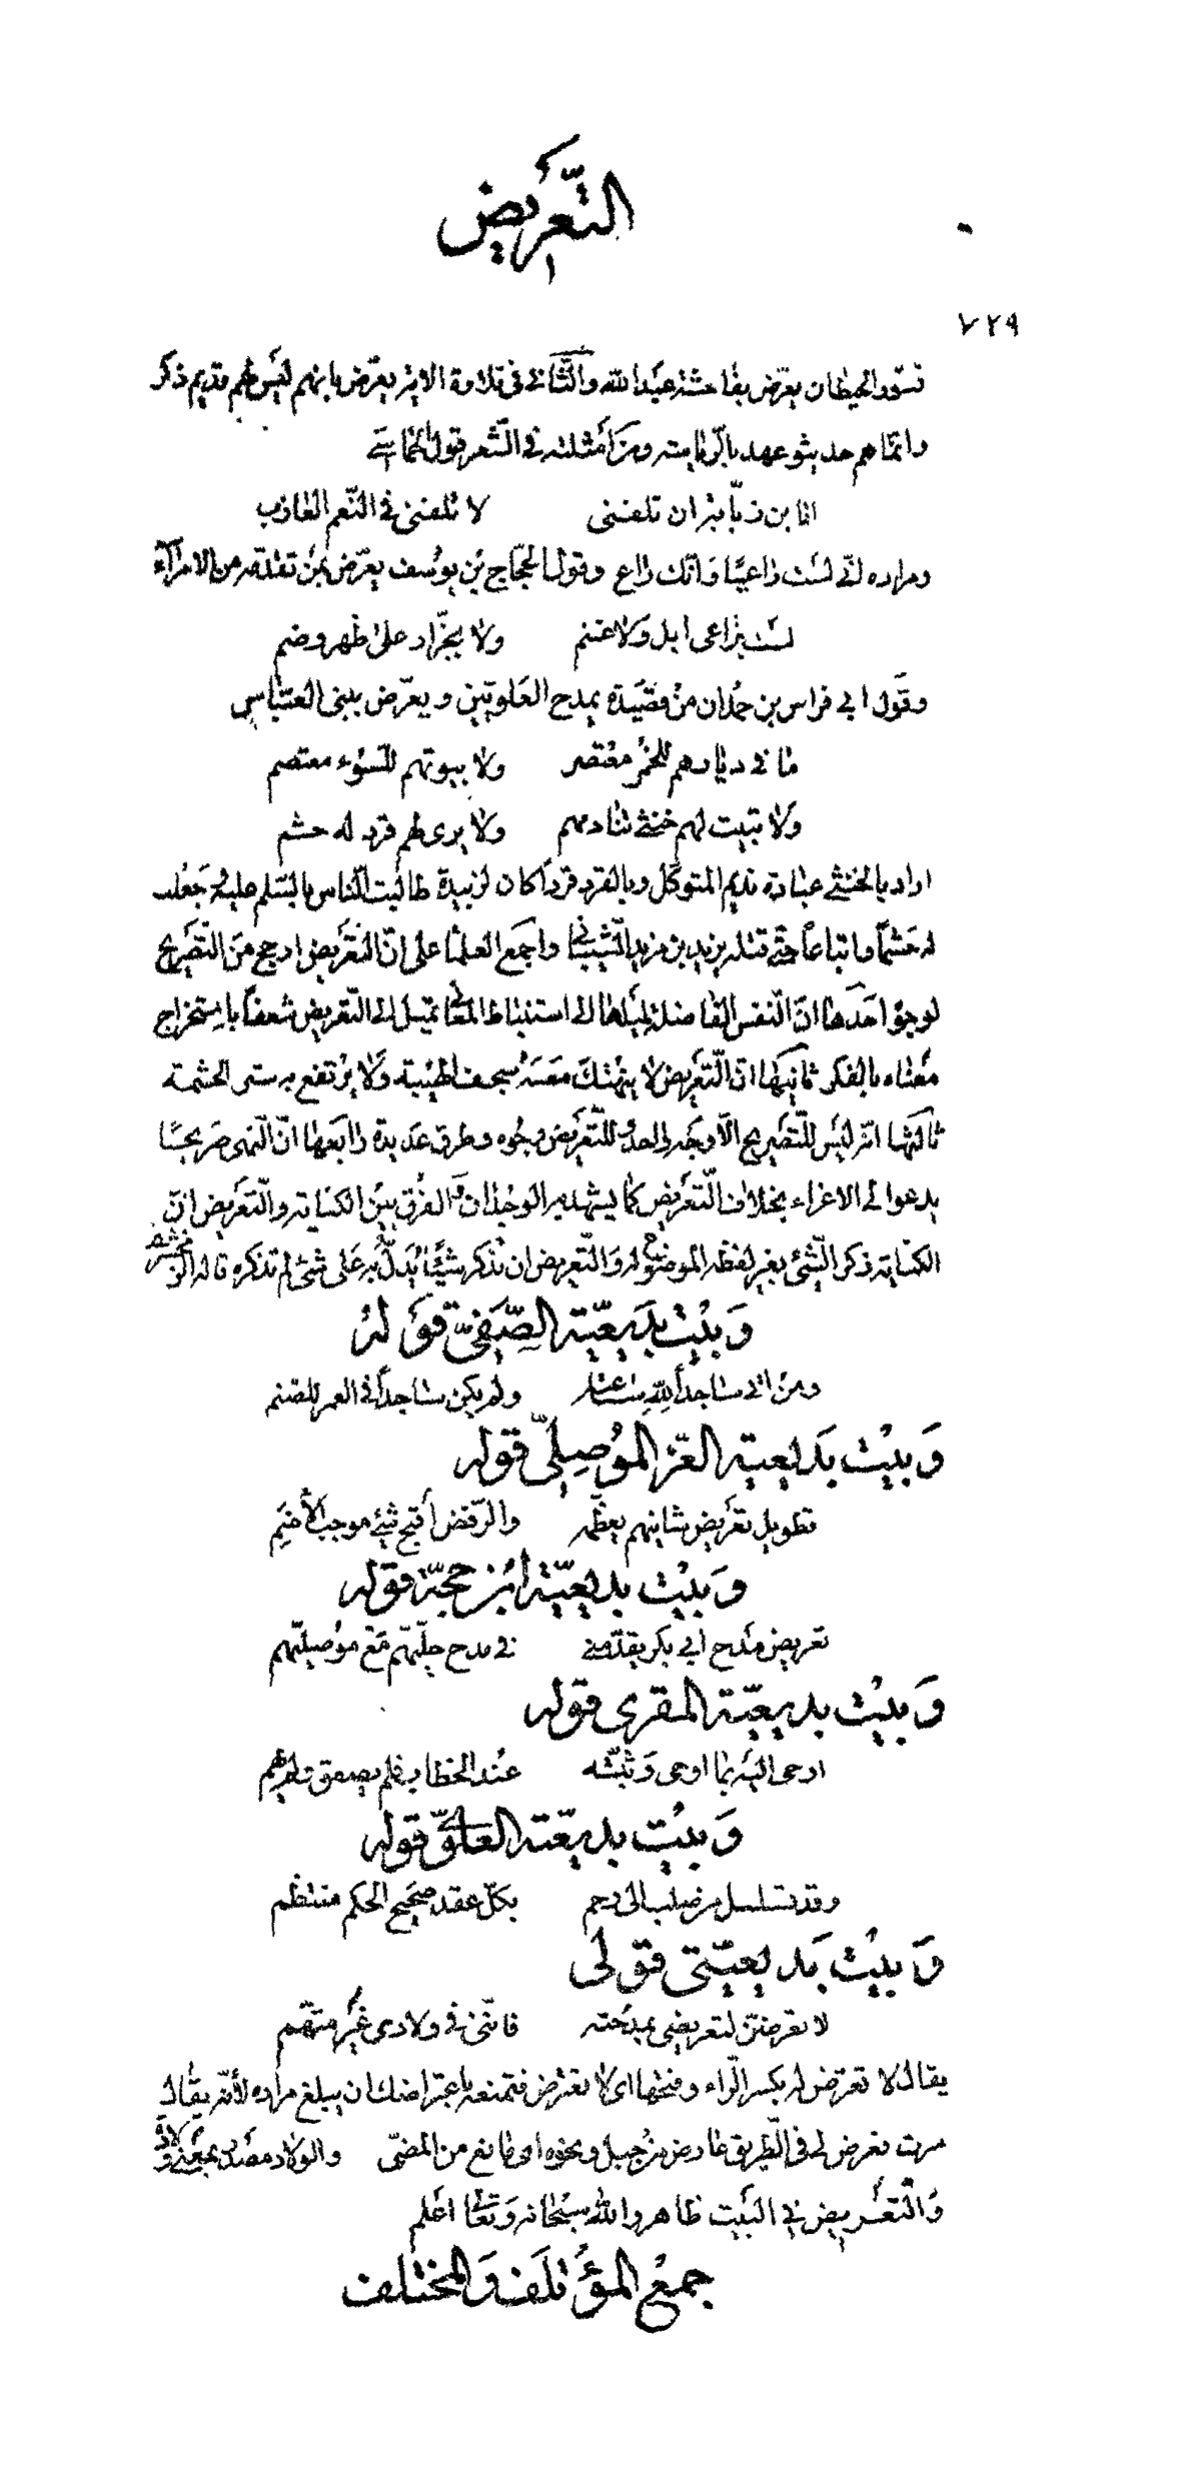 التّعريض
٧٢٩
تسوّد الحيطان يعرّض بفاحشة عبد الله والثّاني في تلاوة الاية يعرّض بانهم ليس لهم قديم ذكر
وانّما هم حديثو عهد بالرّيا سة ومن أمثلته في الشّعر قول الحماسي
انا بن زيّابة ان تلقنى لا تلقنى في النّعم العازب
ومراده انّي لست راعيًا وانّك راع وقول الحجّاج بن يوسف يعرّض بمن تقدّمه من الامرآء
لست براعى ابل ولا غنم ولا بجزّار على ظهر وضم
وقول ابي فراس بن حمدان من قصيدة يمدح العلويّين ويعرّض ببنى العبّاس
ما في ديارهم للخمر معتصر ولا بيوتهم للسّوء معتصم
ولا تبيت لهم خنثى تنادمهم ولا يرى لهم قرد له حشم
اراد بالخنثى عبادة نديم المتوكّل وبالقرد قرداً كان لزبيدة طالبت النّاس بالسّلم عليه وجعلت
له حشماً واتباعاً حتّى قتله يزيد بن مزيد الشّيبانيّ واجمع العلماء على انّ التّعريض ارجح من التّصريح
لوجوه احدها انّ النّفس الفاضلة لميلها الى استنباط المعاني تميل الى التّعريض شعفاً باستخراج
معناه بالفكر ثانيها انّ التّعريض لا ينهتك معه سجف الهيبة ولا يرتفع به ستر الحشمة
ثالثها انّه ليس للتّصريح الّا وجه واحد وللتّعريض وجوه وطرق عديدة رابعها انّ النّهى صريحًا
يدعو الى الاغراء بخلاف التّعريض كما يشهد به الوجدان والفرق بين الكناية والتّعريض انّ
الكناية ذكر الشّيء بغير لفظه الموضوع له والتّعريض ان تذكر شيئًا يدلّ به على شيء لم تذكره قاله الزّمخشرى
وبيت بديعيّة الصّفيّ قوله
ومن اتى ساجداً لله ساعته ولم يكن ساجداً في العمر للصّنم
وبيت بديعية العزّ الموصليّ قوله
تطويل تعريض شانيهم يعظّمه والرّفض أقبح شيء موجب الأضم
وبيت بديعيّة ابن حجّة قوله
تعريض مدح ابي بكر يقدّمني في مدح حلّيهم مع موصليّهم
وبيت بديعيّة المقرى قوله
اوحى اليه بما اوحى وثبّته عند الخطاب فلم يصعق ولم يهم
وبيت بديعيّة العلويّ قوله
وقد تسلسل من صلب الى رحم بكلّ عقد صحيح الحكم منتظم
وبيت بديعيّتى قولى
لا تعرضنّ لتعريضى بمدحته فانّنى في ولادى غير متّهم
يقال لا تعرض له بكسر الرّاء وفتحها اى لا تعترض فتمنعه باعتراضك ان يبلغ مراده لأنّه يقال
سرت فعرض لى في الطّريق عارض من جبل ونحوه اى مانع من المضىّ والولاد مصدر بمعنى ولادة
والتّعريض في البيت ظاهر والله سبحانه وتعالى اعلم
جمع المؤتلف والمختلف